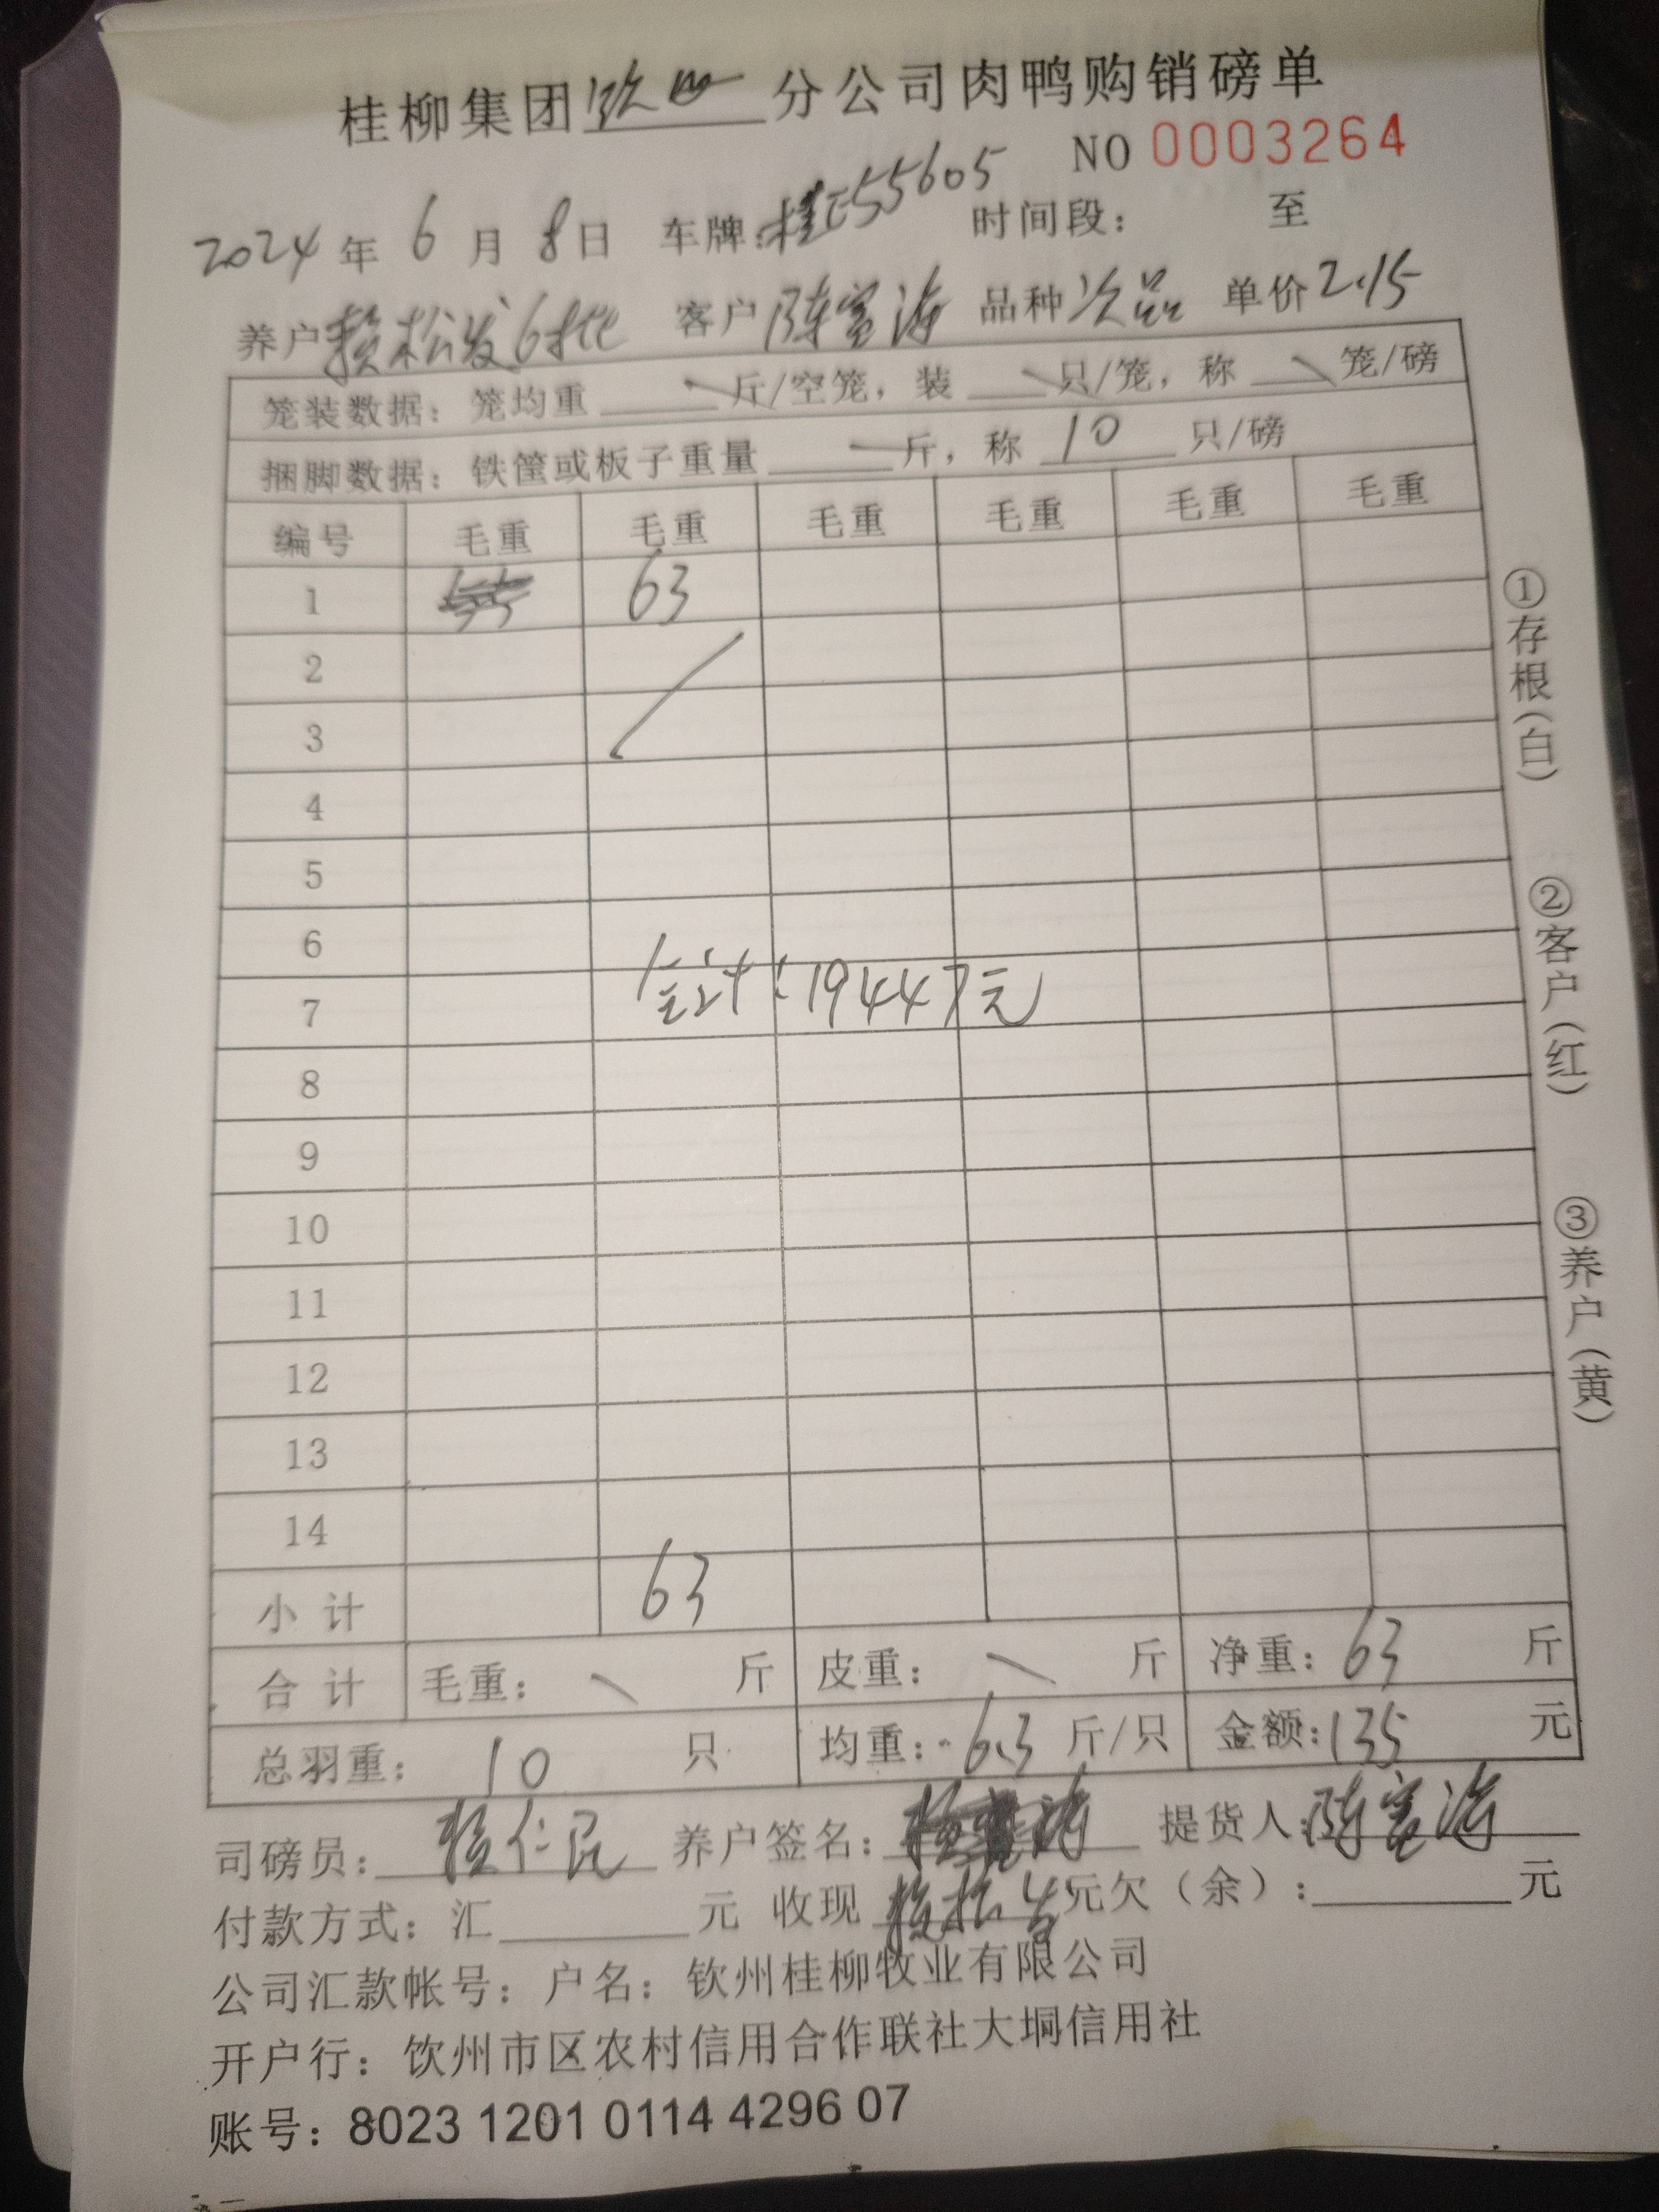 桂柳集团 钦 分公司肉鸭购销磅单
NO 0003264
2024 年 6 月 8 日 车牌: 桂E55605 时间段: 至
养户 赖松发6批 客户 陈富海 品种 次品 单价 2.15
笼装数据: 笼均重 斤/空笼, 装 只/笼, 称 笼/磅
捆脚数据: 铁筐或板子重量 斤, 称 10 只/磅
编号 毛重 毛重 毛重 毛重 毛重 毛重
1 63
2
3
4
5
6
7 合计: 19447元
8
9
10
11
12
13
14
小计 63
合计 毛重: 斤 皮重: 斤 净重: 63 斤
总羽重: 10 只 均重: 6.3 斤/只 金额: 135 元
司磅员: 赖仁民 养户签名: 提货人: 陈富海
付款方式: 汇 元 收现 元 欠(余): 元
公司汇款帐号: 户名: 钦州桂柳牧业有限公司
开户行: 钦州市区农村信用合作联社大垌信用社
账号: 8023 1201 0114 4296 07
①存根(白)
②客户(红)
③养户(黄)